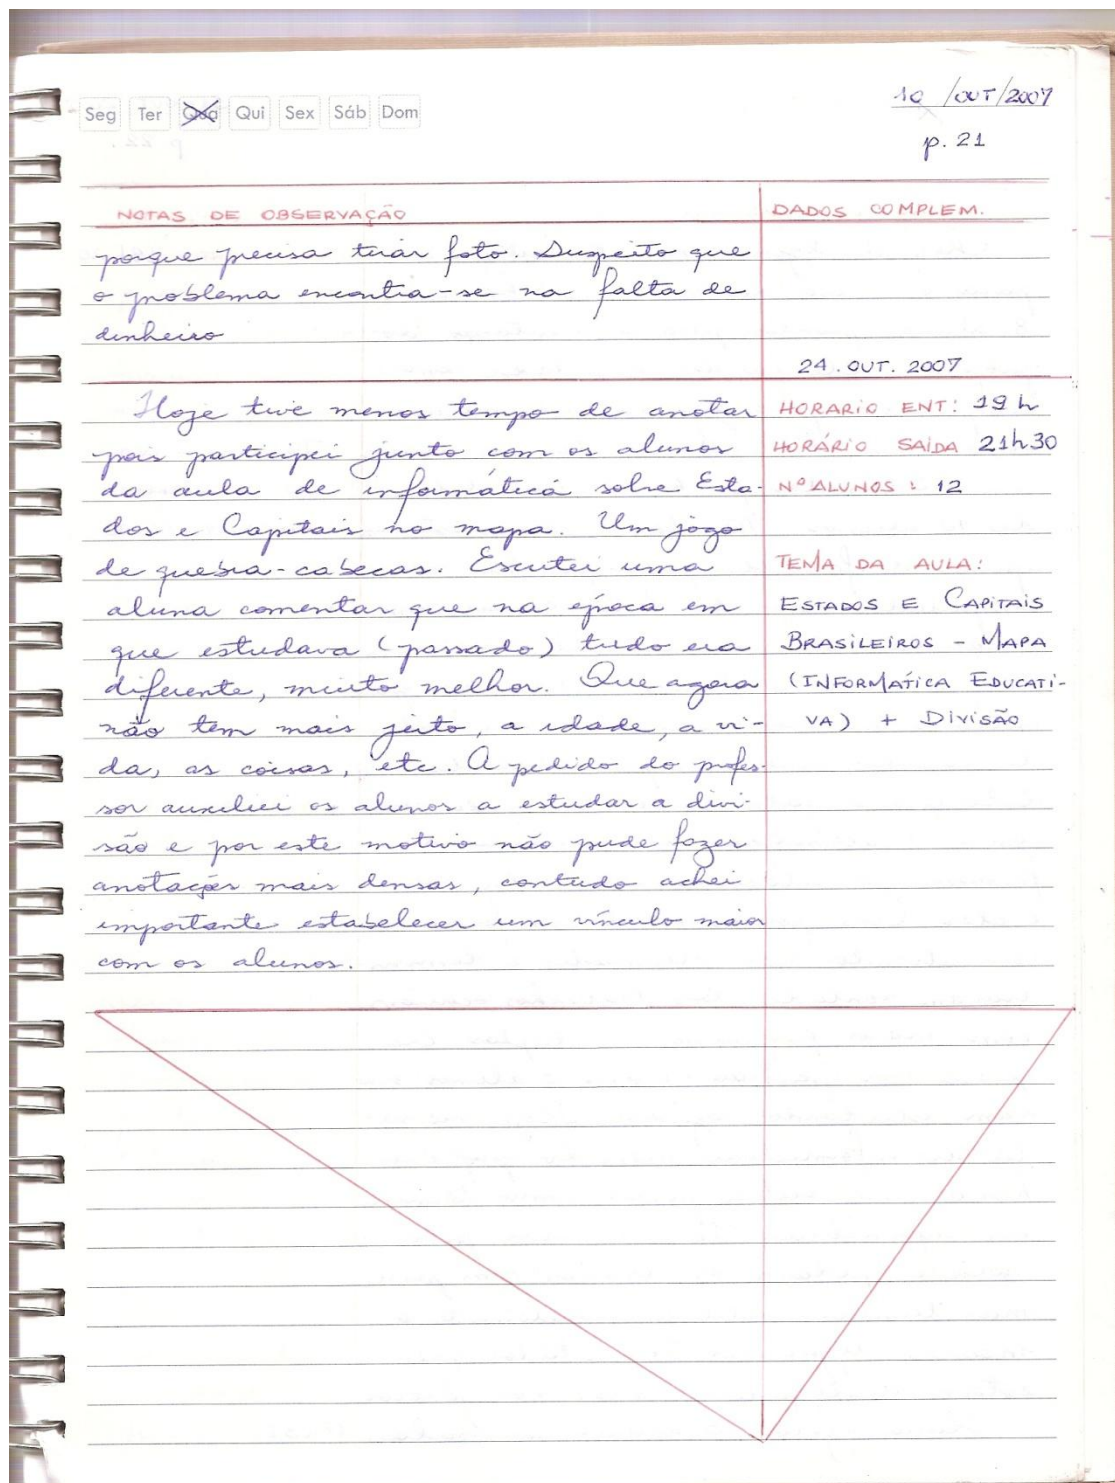 Seg Ter Qua Qui Sex Sáb Dom
10 /OUT/2007
p. 21
NOTAS DE OBSERVAÇÃO
DADOS COMPLEM.
porque precisa tirar foto. Suspeito que
o problema encontra-se na falta de
dinheiro
24. OUT. 2007
Hoje tive menos tempo de anotar
pois participei junto com os alunos
da aula de informática sobre Esta-
dos e Capitais no mapa. Um jogo
de quebra-cabecas. Escutei uma
aluna comentar que na época em
que estudava (passado) tudo era
diferente, muito melhor. Que agora
não tem mais jeito, a idade, a vi-
da, as coisas, etc. A pedido do profes-
sor auxiliei os alunos a estudar a divi-
são e por este motivo não pude fazer
anotações mais densas, contudo achei
importante estabelecer um vínculo maior
com os alunos.
HORARIO ENT: 19 h
HORÁRIO SAÍDA 21h30
Nº ALUNOS : 12
TEMA DA AULA:
ESTADOS E CAPITAIS
BRASILEIROS - MAPA
(INFORMÁTICA EDUCATI-
VA) + DIVISÃO